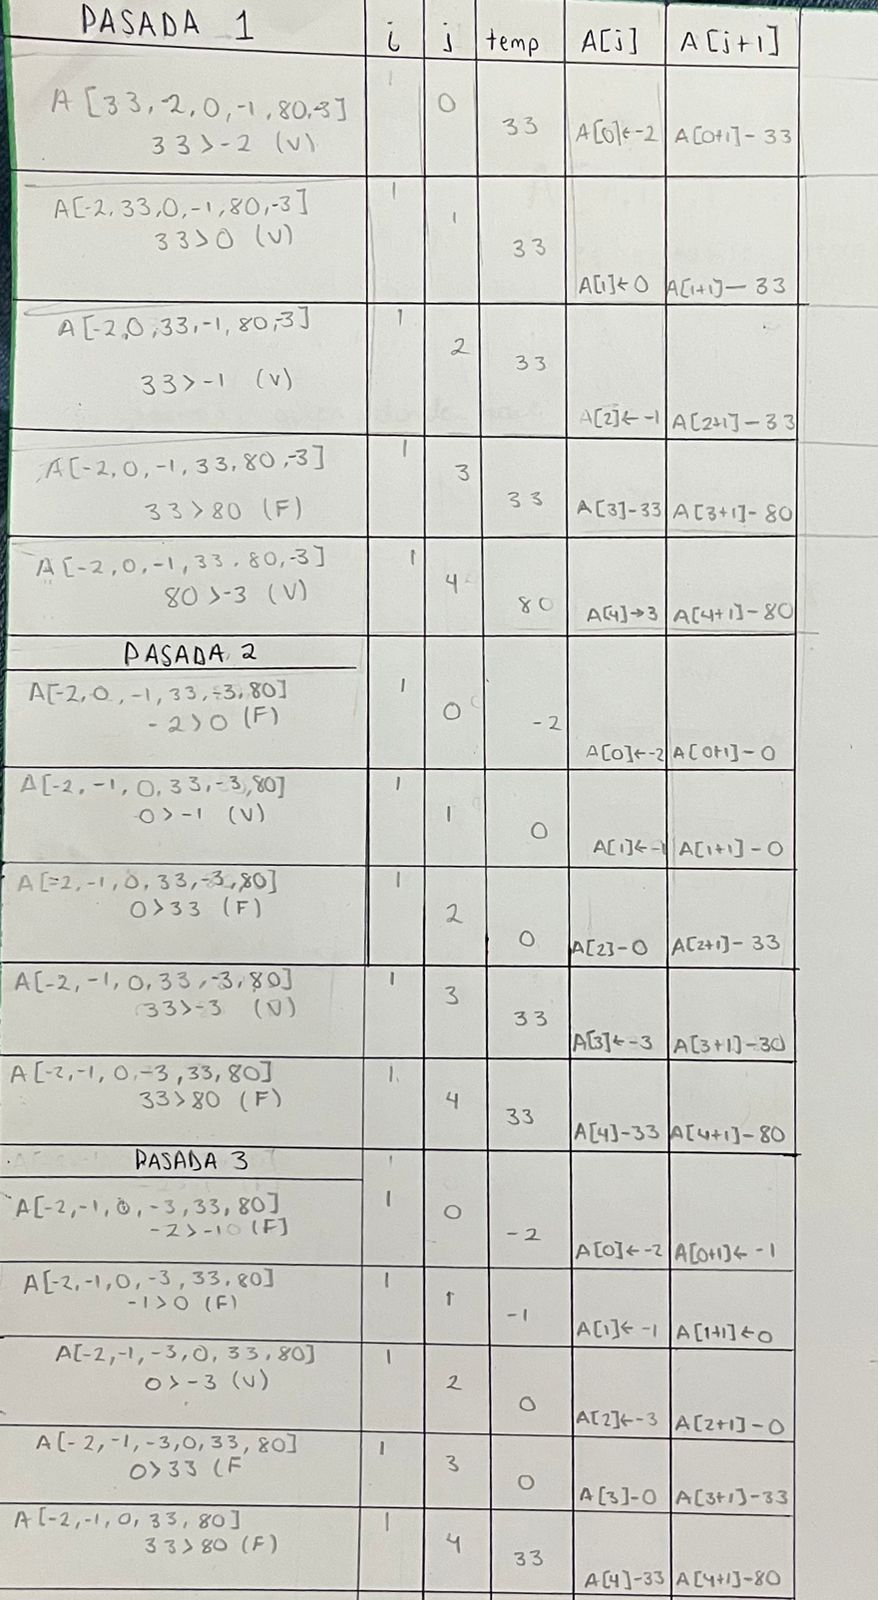 PASADA 1 i j temp A[j] A[j+1]
A[33,-2,0,-1,80,-3] 1 0
33>-2 (V) 33 A[0]←-2 A[0+1]-33
A[-2,33,0,-1,80,-3] 1 1
33>0 (V) 33
A[1]←0 A[1+1]-33
A[-2,0,33,-1,80,-3] 1 2
33>-1 (V) 33
A[2]←-1 A[2+1]-33
A[-2,0,-1,33,80,-3] 1 3
33>80 (F) 33 A[3]-33 A[3+1]-80
A[-2,0,-1,33,80,-3] 1 4
80>-3 (V) 80 A[4]→3 A[4+1]-80
PASADA 2
A[-2,0,-1,33,-3,80] 1 0
-2>0 (F) -2 A[0]←-2 A[0+1]-0
A[-2,-1,0,33,-3,80] 1 1
0>-1 (V) 0 A[1]←-1 A[1+1]-0
A[-2,-1,0,33,-3,80] 1 2
0>33 (F) 0 A[2]-0 A[2+1]-33
A[-2,-1,0,33,-3,80] 1 3
33>-3 (V) 33 A[3]←-3 A[3+1]-30
A[-2,-1,0,-3,33,80] 1 4
33>80 (F) 33 A[4]-33 A[4+1]-80
PASADA 3 1
A[-2,-1,0,-3,33,80] 1 0
-2>-10 (F] -2 A[0]←-2 A[0+1]←-1
A[-2,-1,0,-3,33,80] 1 1
-1>0 (F) -1 A[1]←-1 A[1+1]←0
A[-2,-1,-3,0,33,80] 1 2
0>-3 (V) 0 A[2]←-3 A[2+1]-0
A[-2,-1,-3,0,33,80] 1 3
0>33 (F 0 A[3]-0 A[3+1]-33
A[-2,-1,0,33,80] 1 4
33>80 (F) 33 A[4]-33 A[4+1]-80